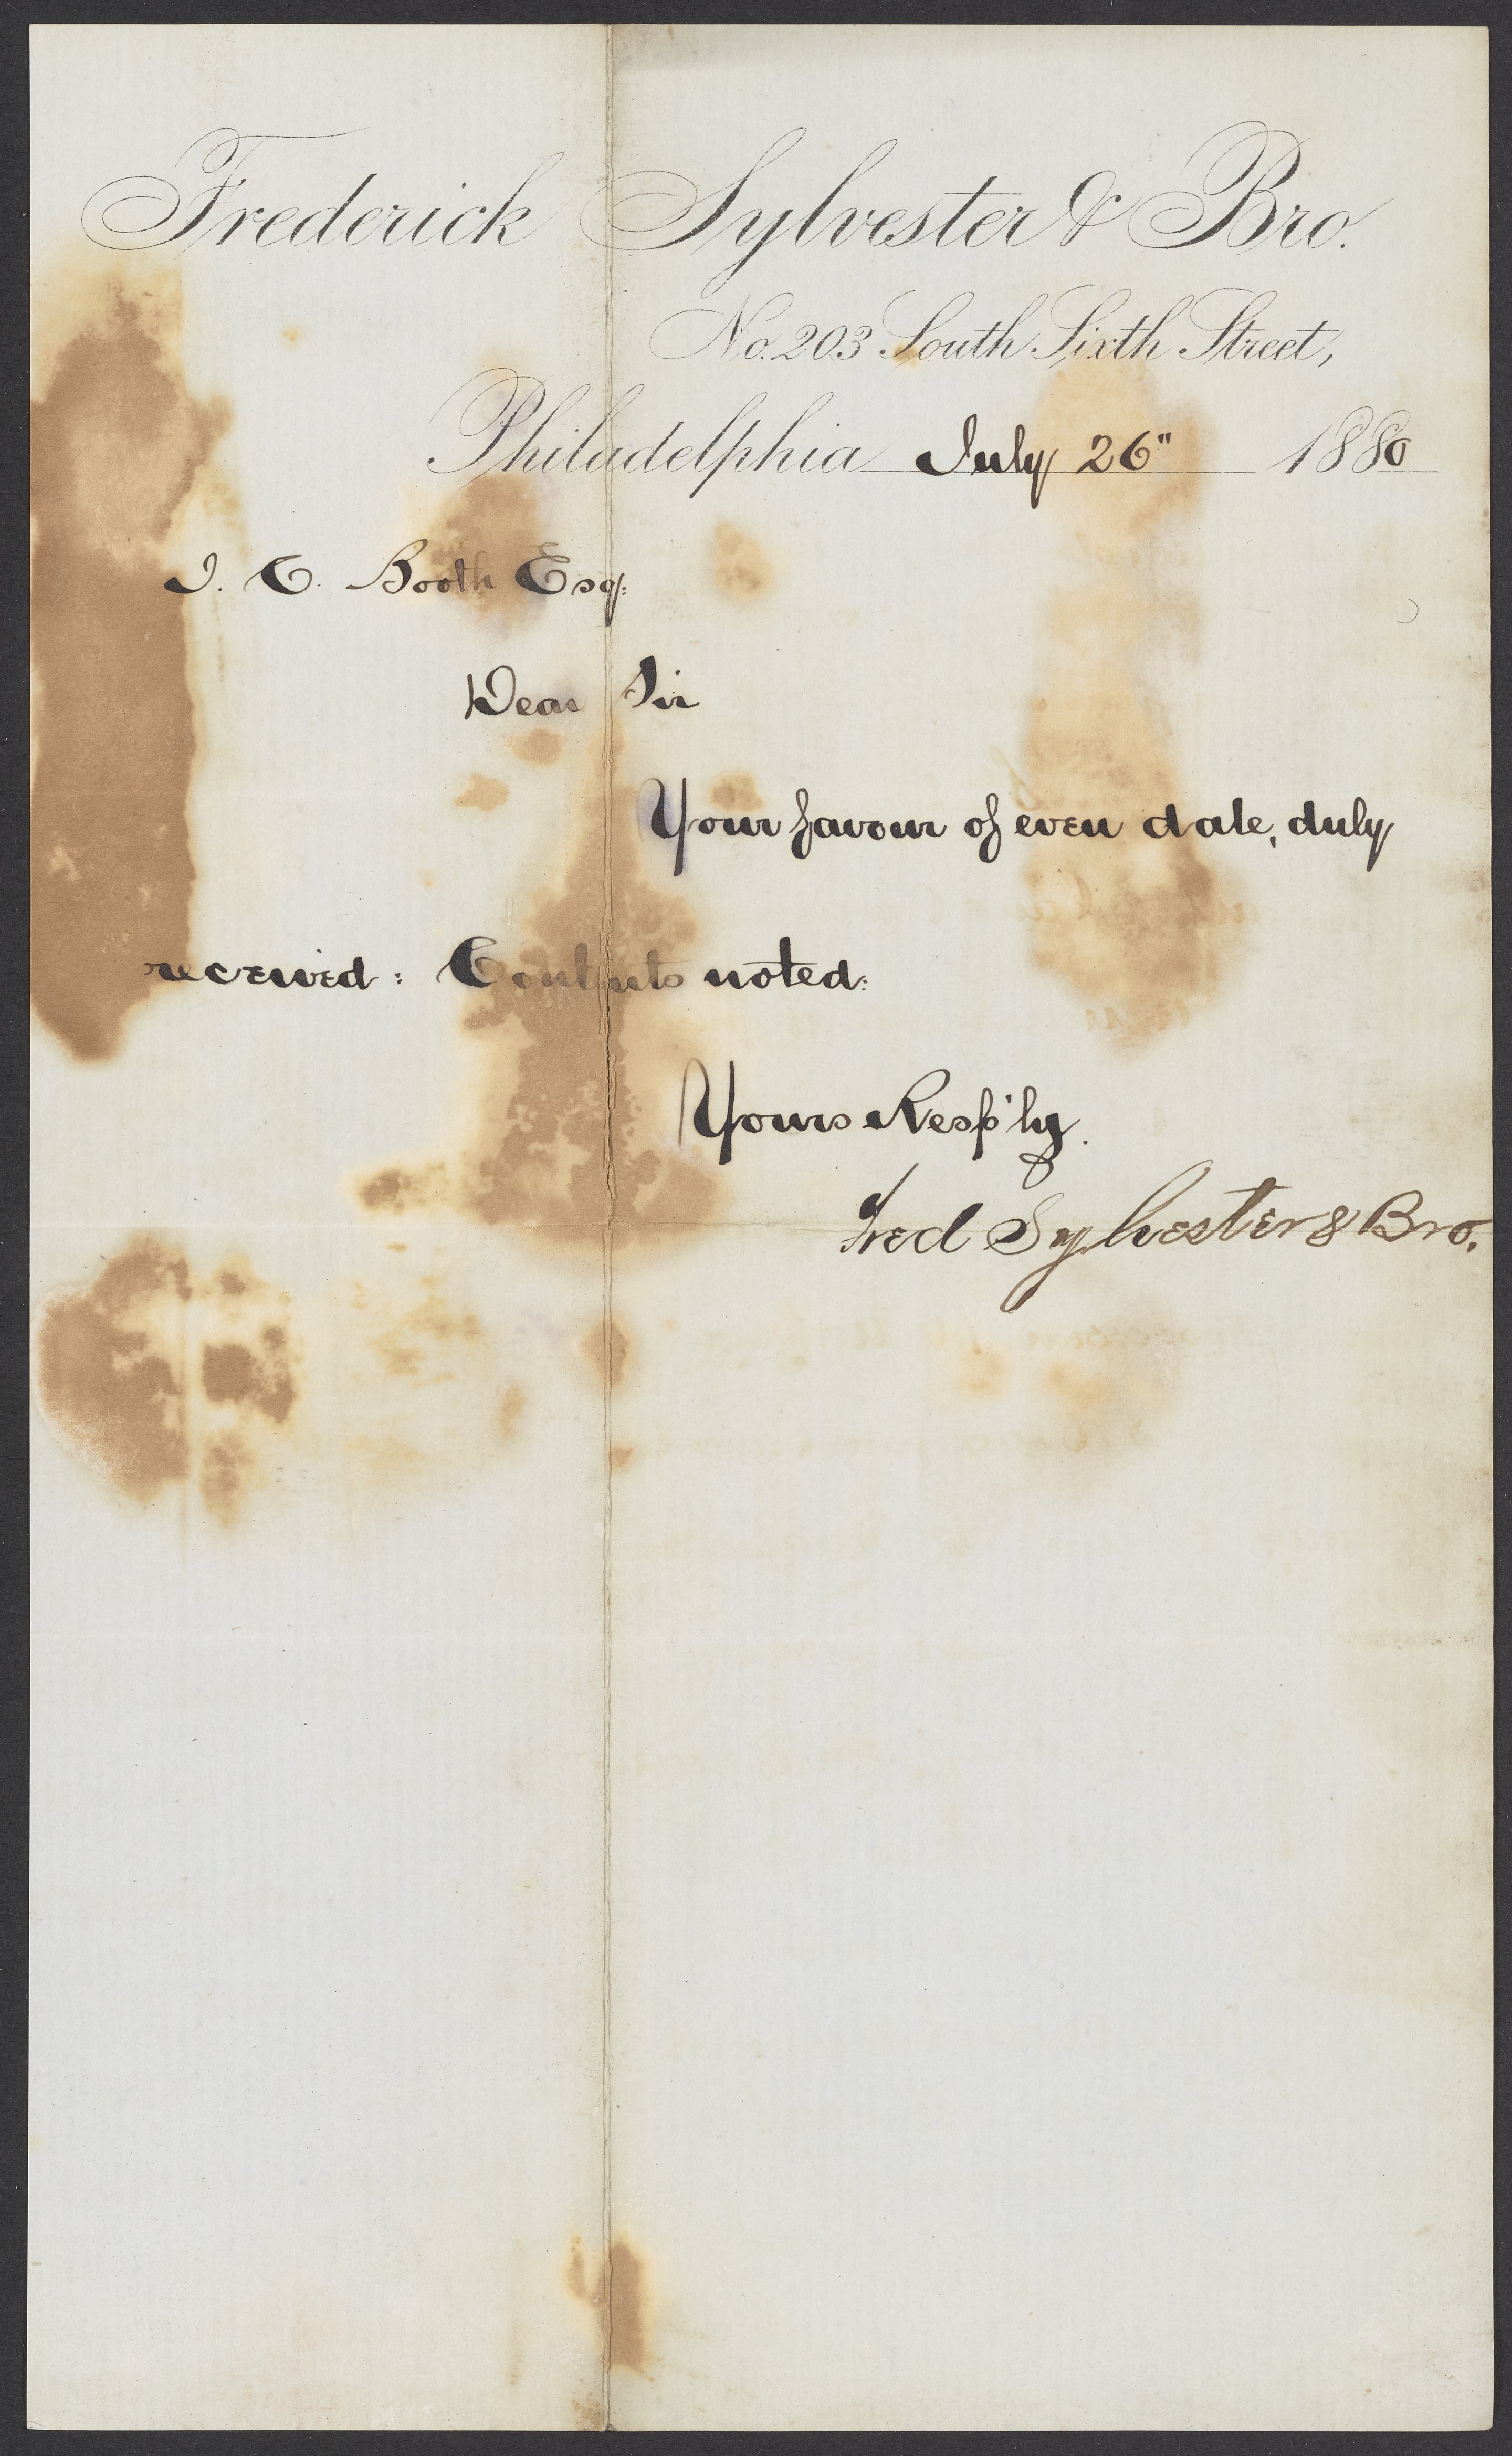 Frederick Sylvester & Bro.
No. 203 South Sixth Street,
Philadelphia July 26" 1880
J. C. Booth Esq:
Dear Sir
Your favour of even date, duly
received: Contents noted:
Yours Resp'ly.
Fred Sylvester & Bro.